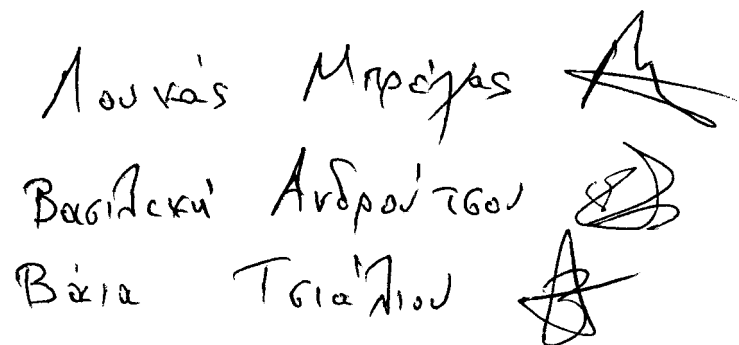 Λουκάς Μπρέγας
Βασιλική Ανδρούτσου
Βάια Τσιάλιου